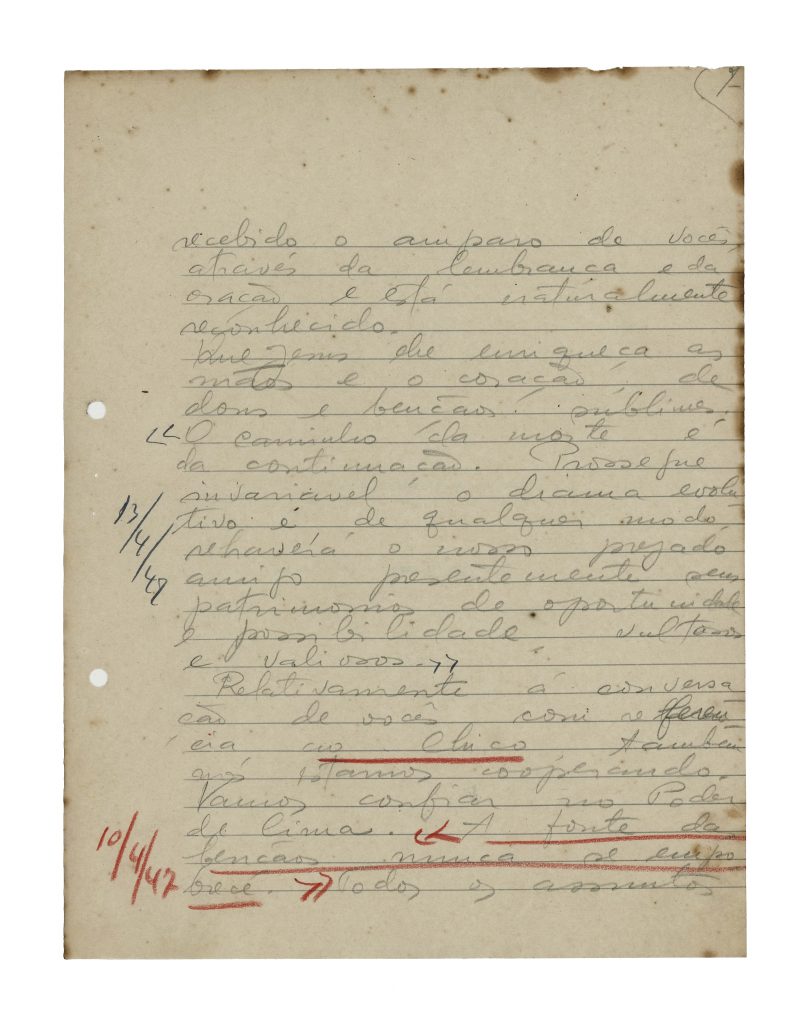 7-
recebido o amparo de vocês
através da lembranca e da
oração e está naturalmente
reconhecido.
Que Jesus lhe enriqueça as
mãos e o coração de
dons e bencãos sublimes.
“O caminho da morte é
da continuação. Prossegue
invariavel o drama evolu
tivo e de qualquer modo
rehaverá o nosso prezado
amigo presentemente seus
patrimonios de oportunidade
e possibilidade vultosos
e valiosos.”
13/4/47
Relativamente á conversa
ção de vocês com referên
cia ao Chico também
nós estamos cooperando.
Vamos confiar no Poder
de Cima. “A fonte da
bencãos nunca se empo
brece.” Todos os assuntos
10/4/47